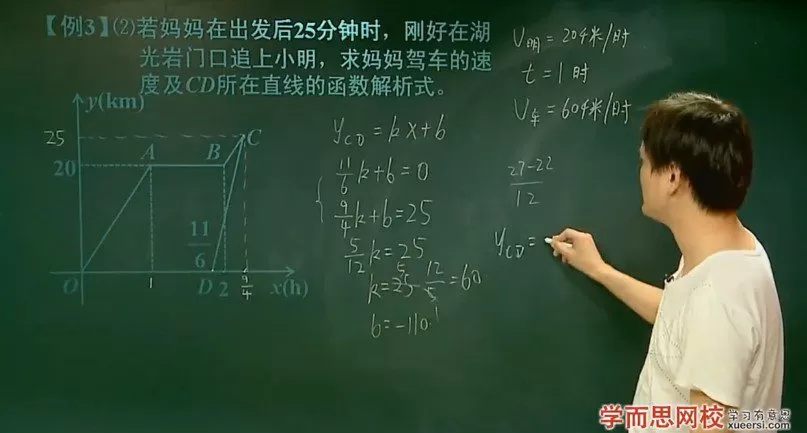 【例3】(2)若妈妈在出发后25分钟时，刚好在湖
光岩门口追上小明，求妈妈驾车的速
度及CD所在直线的函数解析式。
y(km)
25
20
A
B
C
11/6
O
1
D
2
9/4
x(h)
y_CD=kx+b
11/6k+b=0
9/4k+b=25
5/12k=25
k=25·12/5=60
5
b=-110.
V明=20千米/时
t=1时
V车=60千米/时
27-22/12
y_CD=
学而思网校
学习有意思
xueersi.com